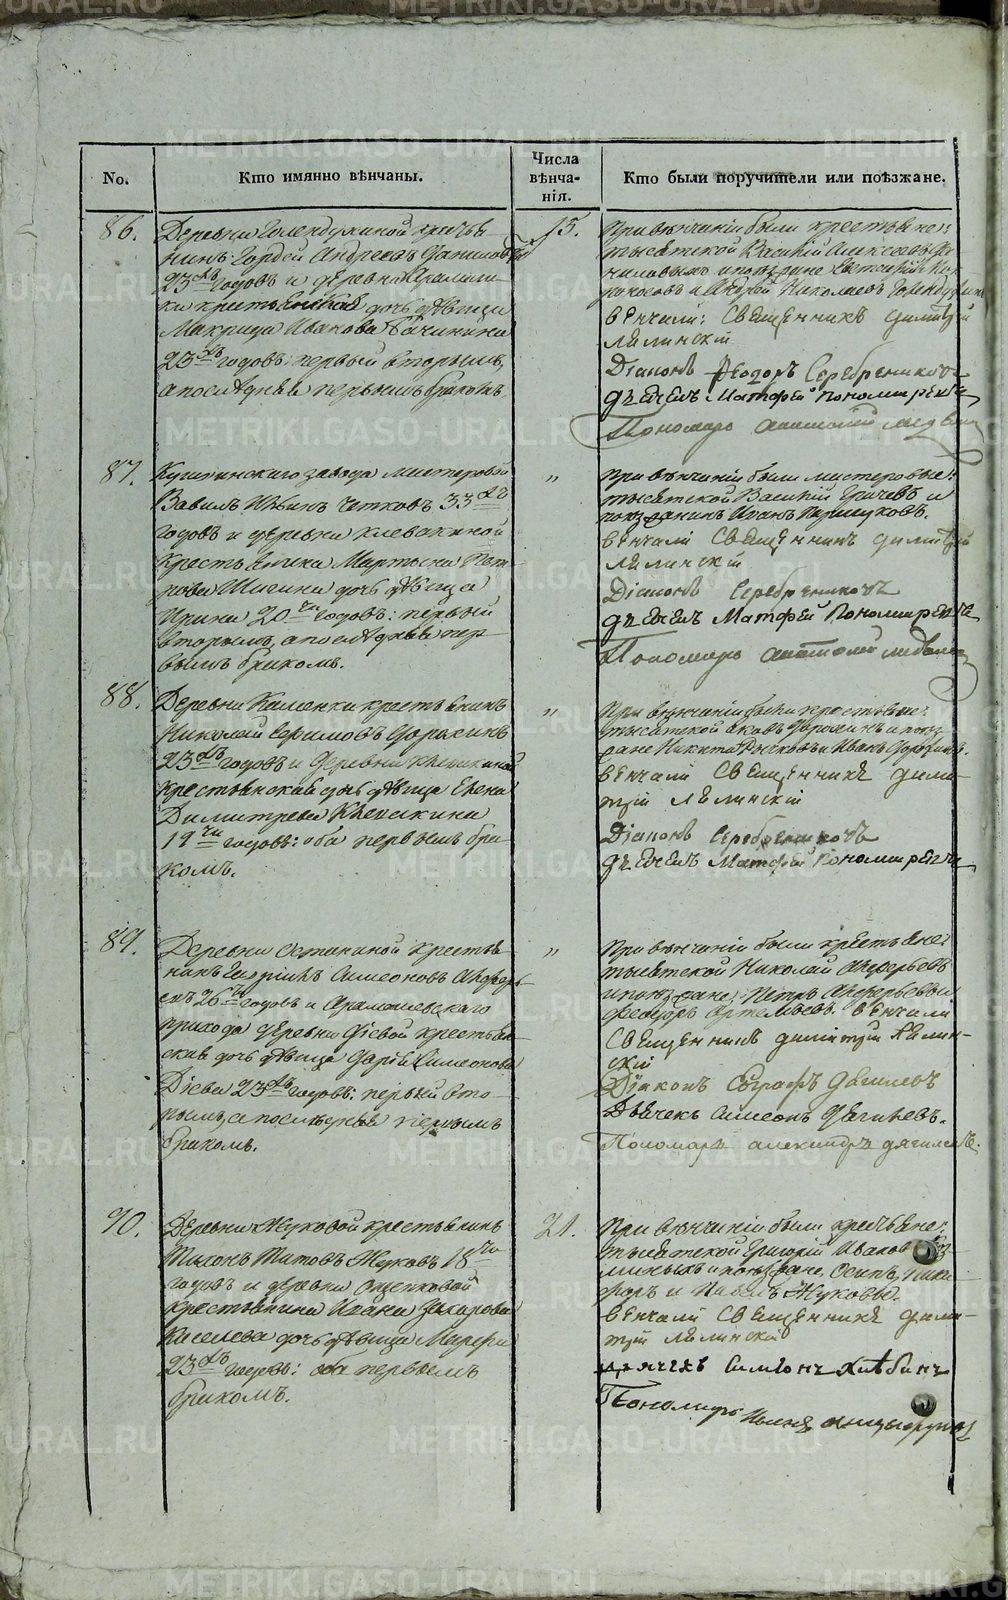 METRIKI.GASO-URAL.RU
No.
Кто имянно вѣнчаны.
Числа вѣнча-
нія.
Кто были поручители или поѣзжане.
86.
Деревни Голендухиной крестья
нинъ Гордей Андреевъ Даниловъ
23хъ годовъ и деревни
крестьянская дочь дѣвица
Макрида Иванова Бачинина
23хъ годовъ: первый вторымъ,
а послѣдняя первымъ бракомъ.
15.
При вѣнчаніи были крестьяне:
тысятской Василій Алексѣевъ Да
ниловыхъ и поѣзжане Евгений
и Андрей Николаевъ Голендухинъ
вѣнчали: Священникъ Димитрій
Лялинскій
Діаконъ Ѳеодоръ Серебрениковъ
дьячекъ Матфей Пономаревъ
Пономарь Анатолій
87.
завода мастеровой
Вавилъ Четковъ 33хъ
годовъ и деревни Клевакиной
крестьянина Мартына Пет-
рова Шигина дочь дѣвица
Ирина 20ти годовъ: первый
вторымъ, а послѣдняя пер-
вымъ бракомъ.
"
При вѣнчаніи были мастеровые:
тысятской Василій и
поѣзжанинъ Иванъ
вѣнчали Священникъ Димитрій
Лялинскій
Діаконъ Серебрениковъ
дьячекъ Матфей Пономаревъ
Пономарь Анатолій
88.
Деревни Каменки крестьянинъ
Николай Ефимовъ
23хъ годовъ и деревни Клевакиной
крестьянская дочь дѣвица Елена
Димитрева Клевакина
19ти годовъ: оба первымъ бра-
комъ.
"
При вѣнчаніи были крестьяне:
тысятской Яковъ и поѣз-
жане Никита Рычковъ и Иванъ
вѣнчали Священникъ Дими-
трій Лялинскій
Діаконъ Серебрениковъ
дьячекъ Матфей Пономаревъ
89.
Деревни Останиной крестья-
нинъ Гавріилъ Симеоновъ
26ти годовъ и Арамашевскаго
прихода деревни Діевой крестьян-
ская дочь дѣвица Дарія Симеонова
Діева 23хъ годовъ: первый вто-
рымъ, а послѣдняя первымъ
бракомъ.
"
При вѣнчаніи были крестьяне:
тысятской Николай
и поѣзжане: Петръ и
Феодоръ Артемьевъ. вѣнчали
Священникъ Димитрій Лялин-
скій
Діаконъ Евграфъ Дягилевъ
Дьячекъ Симеонъ Дягилевъ.
Пономарь Александръ Дягилевъ.
90.
Деревни Жуковой крестьянинъ
Тихонъ Титовъ Жуковъ 18ти
годовъ и деревни Ощепковой
крестьянина Ивана Захарова
Киселева дочь дѣвица Марѳа
23хъ годовъ: оба первымъ
бракомъ.
21.
При вѣнчаніи были крестьяне:
тысятской Григорій Ивановъ
и поѣзжане, Осипъ, Ники-
форъ и Павелъ Жуковы.
вѣнчали Священникъ Дими-
трій Лялинскій
дьячекъ Симеонъ Хлѣбинъ
Пономарь